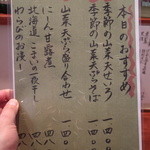 本日のおすすめ
季節の山菜天せいろ 一四〇〇
季節の山菜天ぷらそば 一四〇〇
山菜天ぷら盛り合わせ 一二〇〇
にしん甘露煮
北海道 こまいの一夜干し 四八
わらびのお浸し 四八